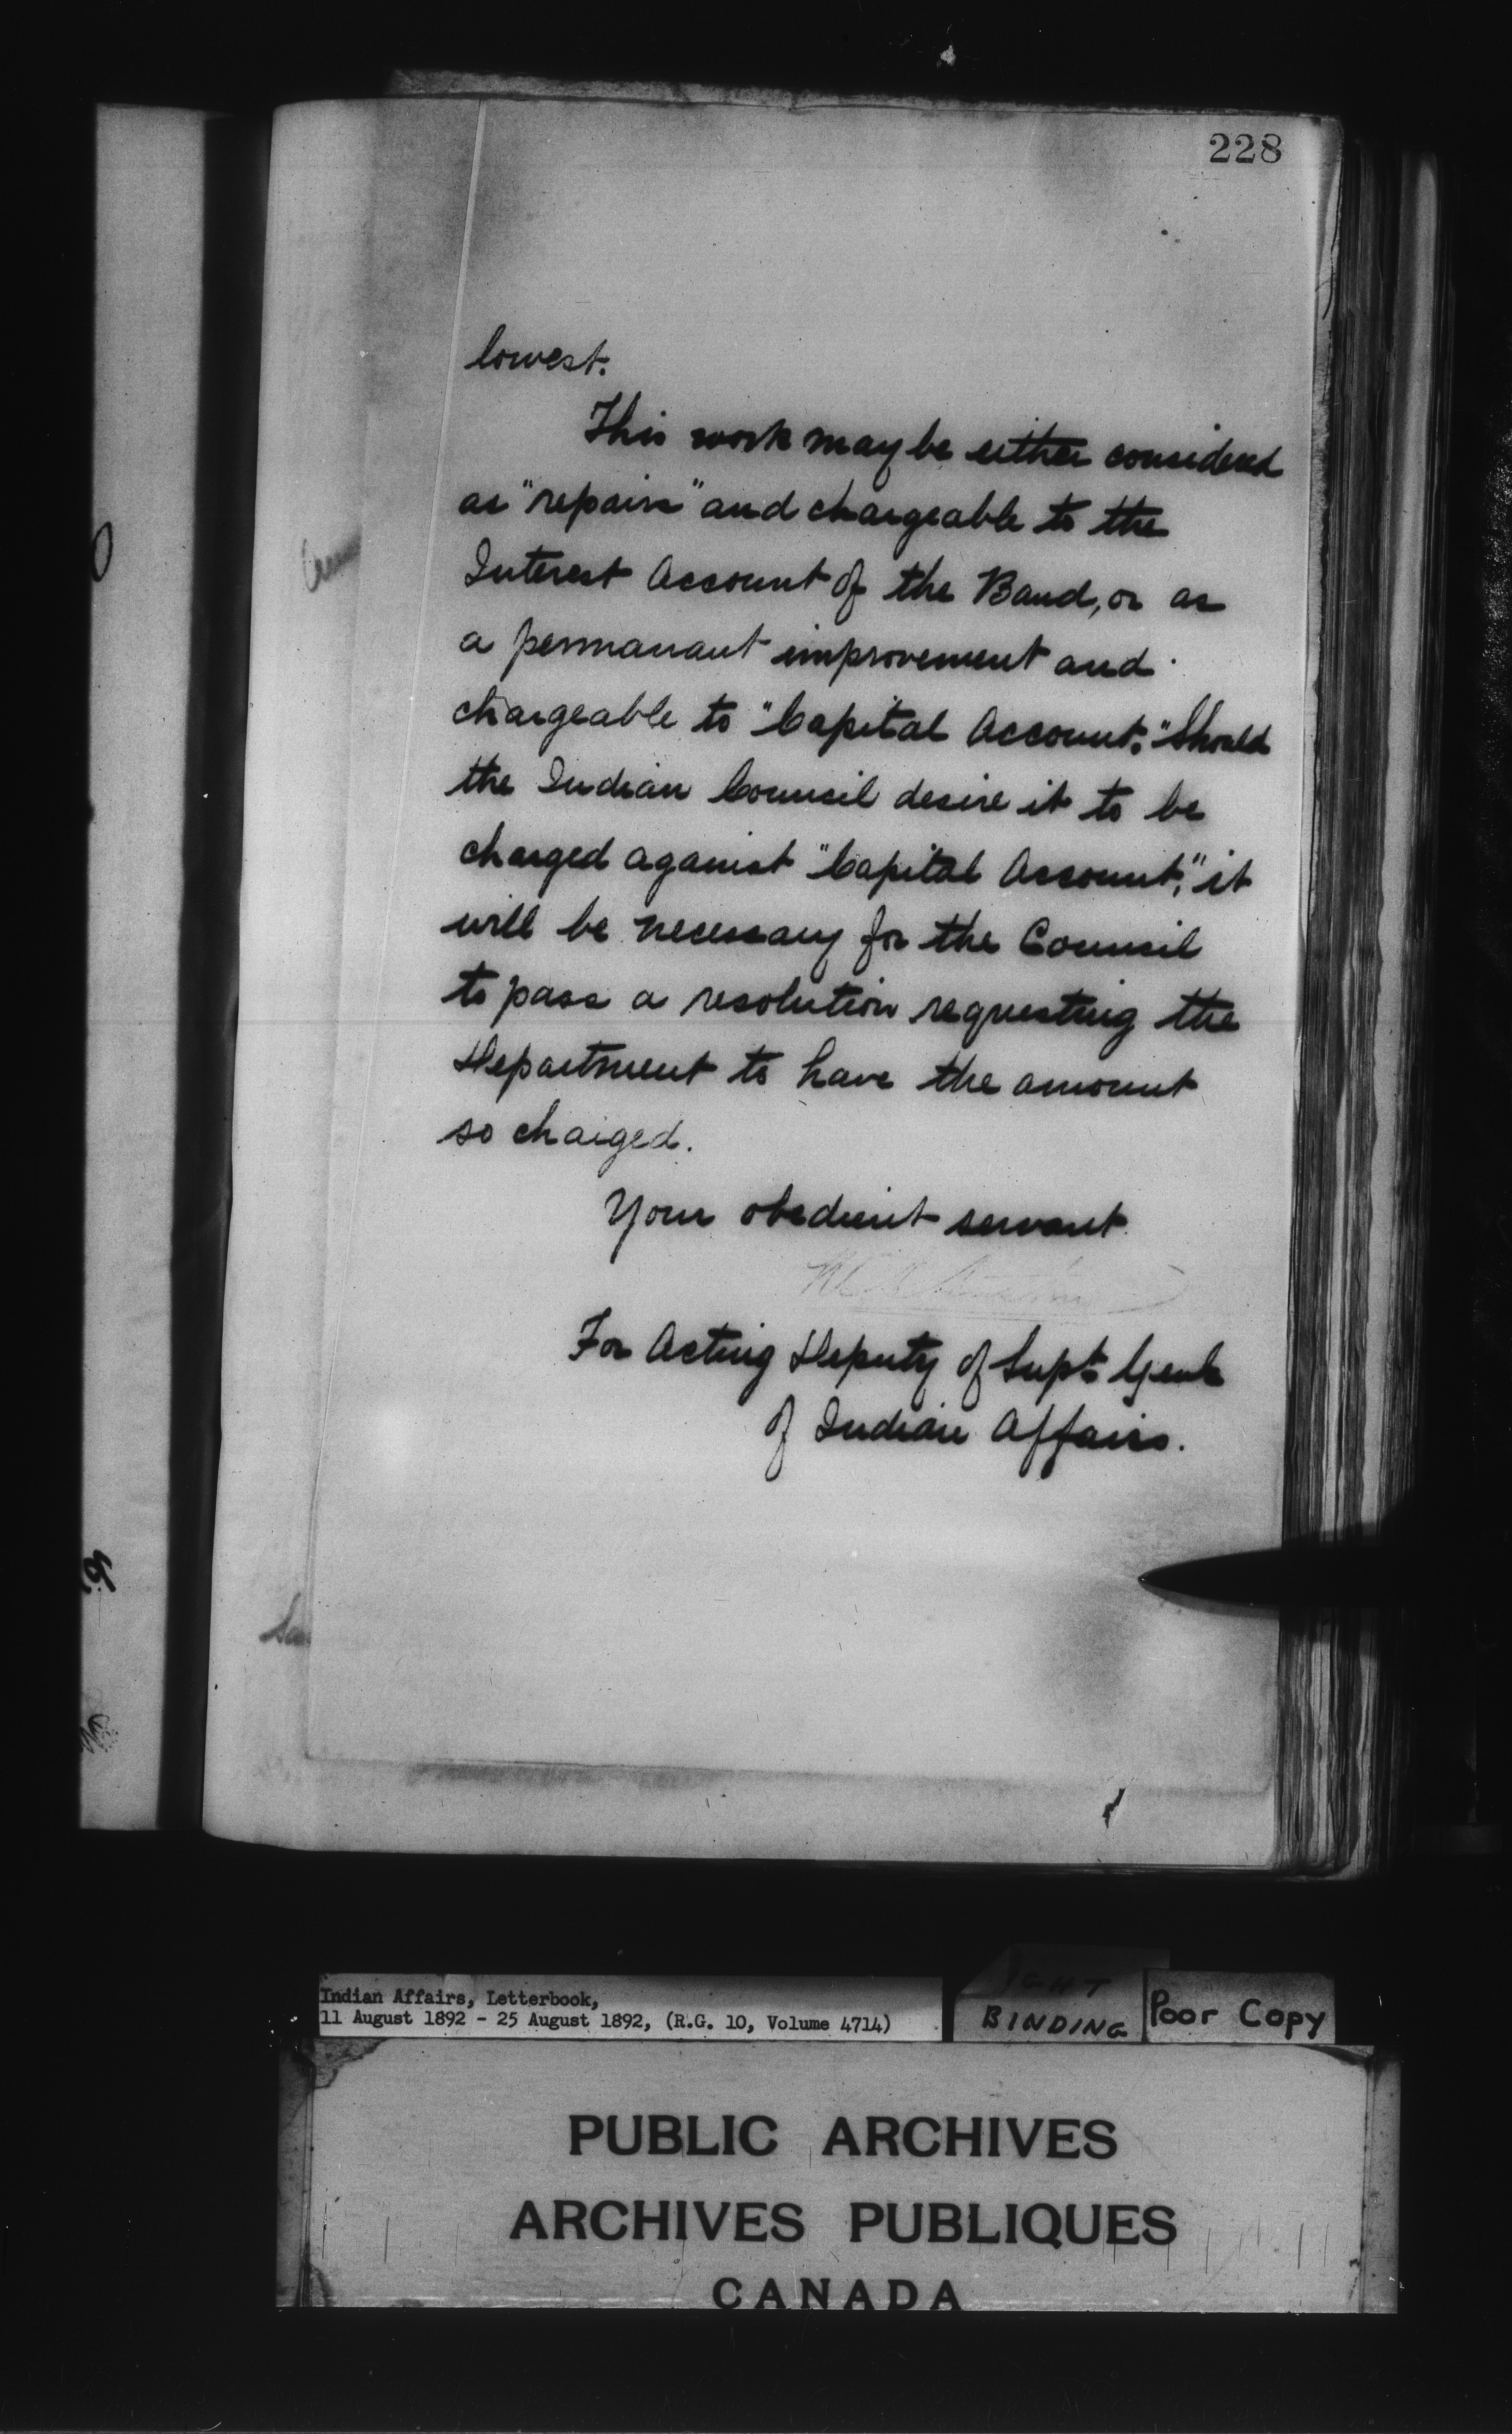 228
lowest.
This work may be either considered
as "repairs" and chargeable to the
Interest Account of the Band, or as
a permanant improvement and
chargeable to "Capital Account." Should
the Indian Council desire it to be
charged against "Capital Account," it
will be necessary for the Council
to pass a resolution requesting the
Department to have the amount
so charged.
Your obedient servant
For Acting Deputy of Supt. Genl.
of Indian Affairs.
Indian Affairs, Letterbook,
11 August 1892 - 25 August 1892, (R.G. 10, Volume 4714)
BINDING
Poor Copy
PUBLIC ARCHIVES
ARCHIVES PUBLIQUES
CANADA